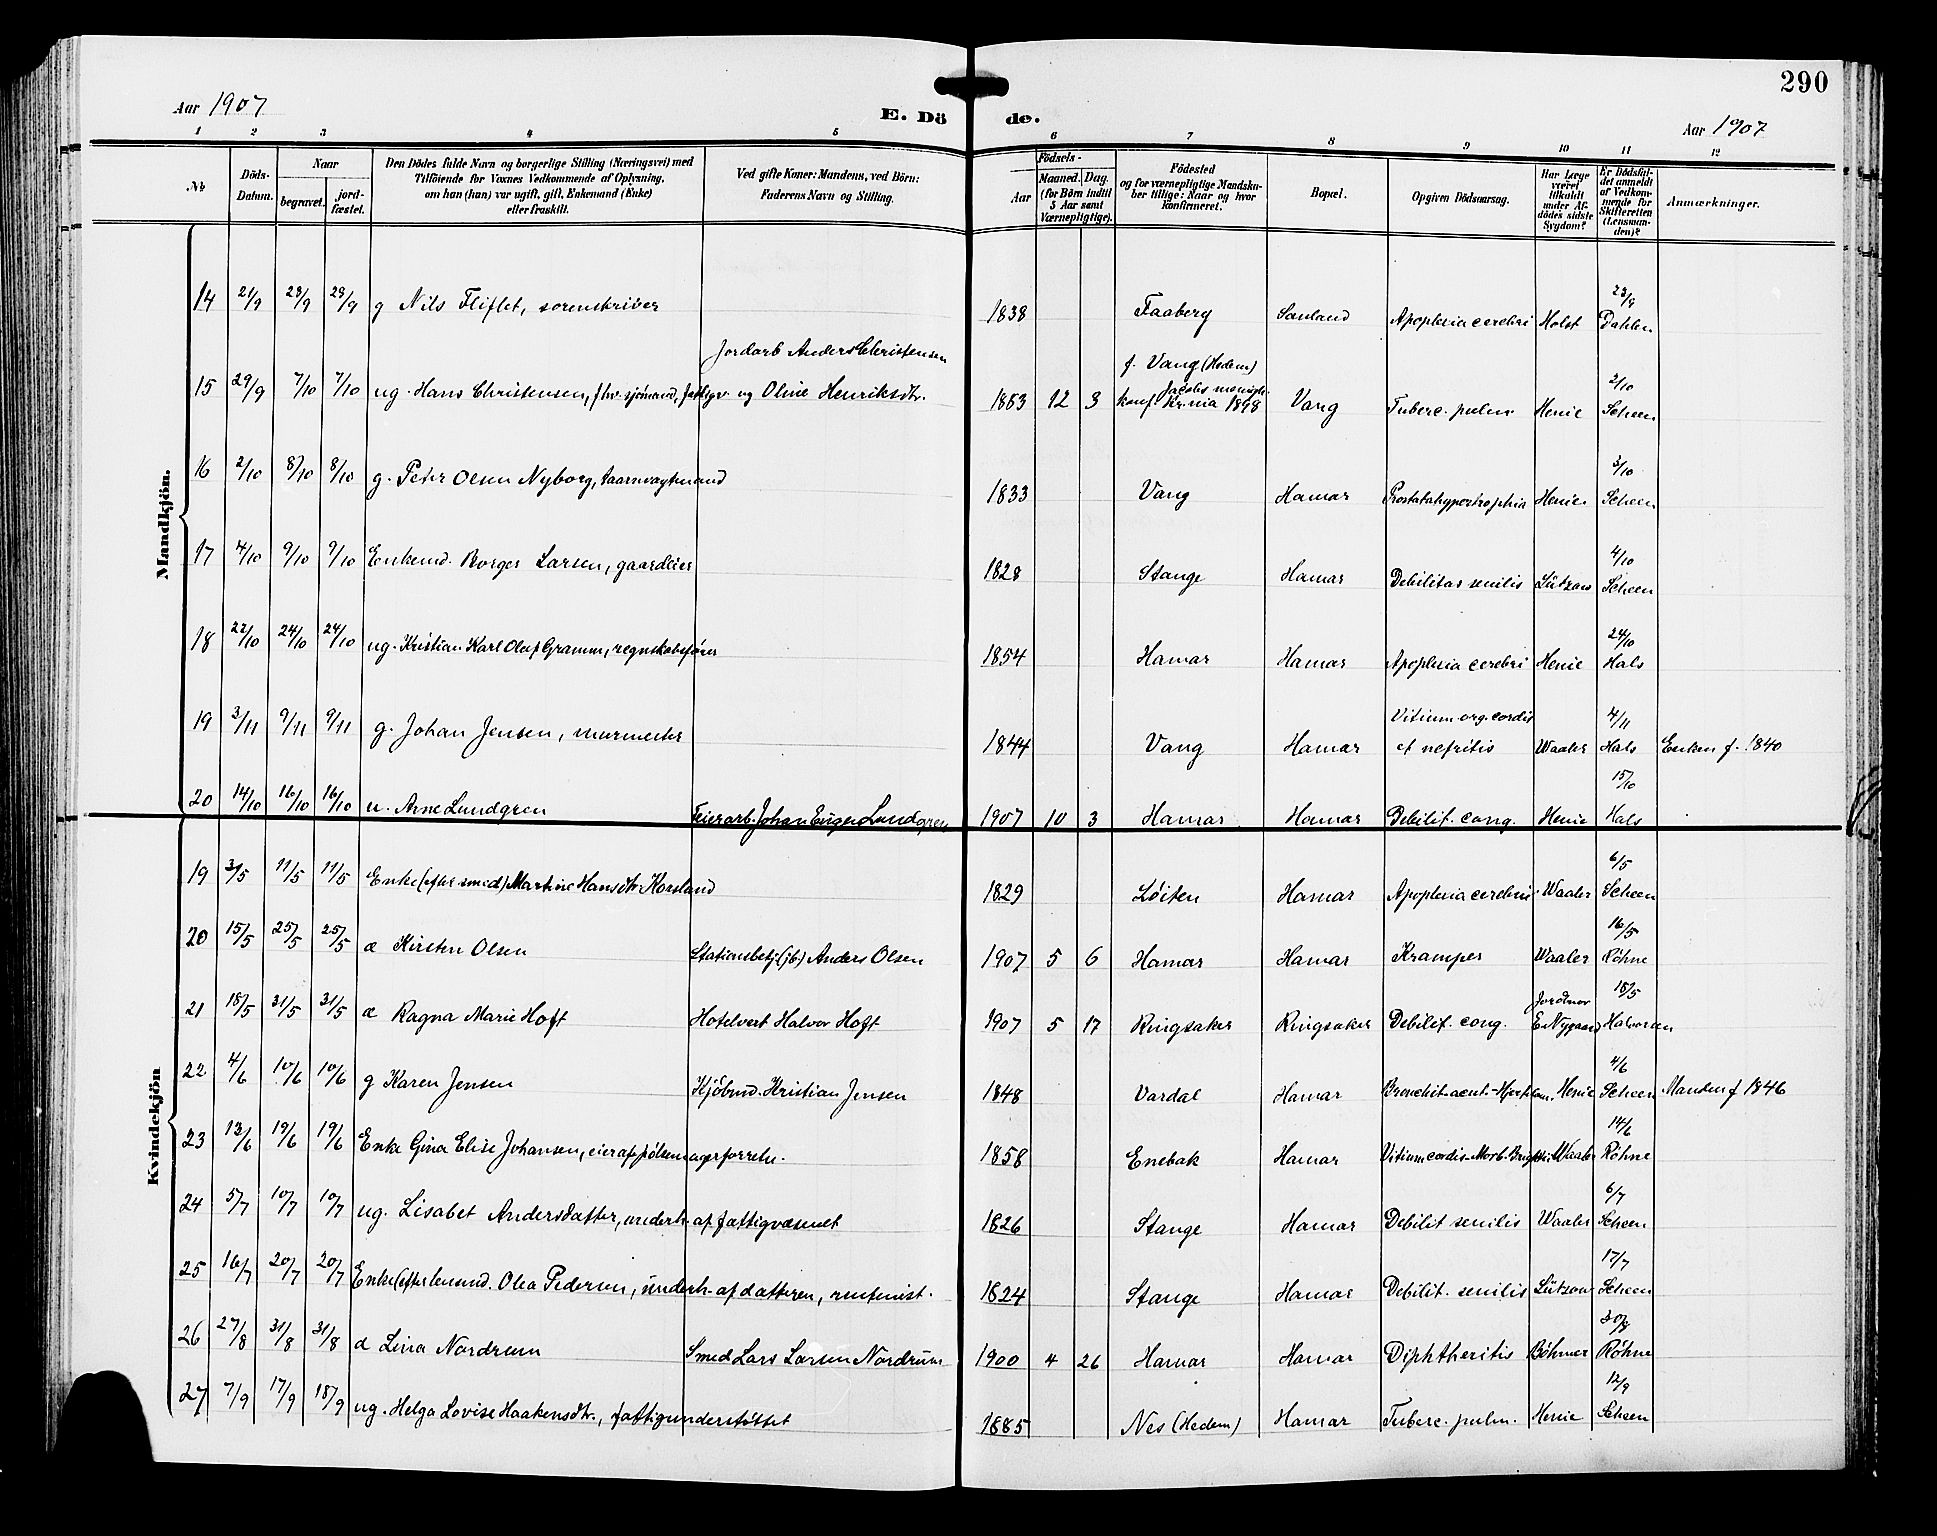 290
Aar 1907
E. Dö de.
Aar 1907
1 2 3 4 5 6 7 8 9 10 11 12
No
Döds-Datum.
Naar
begravet.
jord-fæstet.
Den Dödes fulde Navn og borgerlige Stilling (Næringsvei) med
Tilföiende for Voxnes Vedkommende af Oplysning,
om han (hun) var ugift, gift, Enkemand (Enke)
eller fraskilt.
Ved gifte Koner: Mandens, ved Börn:
Faderens Navn og Stilling.
Födsels-
Aar
Maaned. Dag.
(for Börn indtil
5 Aar samt
Værnepligtige).
Födested
og for værnepligtige Mandskaber
tillige: Naar og hvor
konfirmeret.
Bopæl.
Opgiven Dödsaarsag.
Har Læge
været
tilkaldt
under Afdödes
sidste
Sygdom?
Er Dödsfaldet
anmeldt
af Vedkommende
for
Skifteretten
(Lensmanden)?
Anmærkninger.
Mandkjön.
14 21/9 28/9 28/9 g Nils Fliflet, sorenskriver 1838 Faaberg Sauland Apoplexia cerebri Holst 23/9 Dahlen
15 29/9 7/10 7/10 ug. Hans Christensen, fhv. sjömand, fattigv. Jordarb Anders Christensen og Oline Henriksdtr. 1883 12 3 f. Vang (Hedem) konf. Jacobs menigh. Kr.nia 1898 Vang Tuberc. pulm Henie 2/10 Scheen
16 2/10 8/10 8/10 g. Peter Olsen Nyborg, taarnvagtmand 1833 Vang Hamar Prostatahypertrophia Henie 3/10 Scheen
17 4/10 9/10 9/10 Enkemd. Borger Larsen, gaardeier 1828 Stange Hamar Debilitas senilis Lützow 4/10 Scheen
18 22/10 24/10 24/10 ug. Kristian Karl Olaf Gramm, regnskabsfører 1854 Hamar Hamar Apoplexia cerebri Henie 24/10 Hals
19 3/11 9/11 9/11 g. Johan Jensen, murmester 1844 Vang Hamar Vitium org. cordis et nefritis Waaler 4/11 Hals Enken f. 1840
20 14/10 16/10 16/10 u. Arne Lundgren Feierarb. Johan Eugen Lundgren 1907 10 3 Hamar Hamar Debilit. cong. Henie 15/10 Hals
Kvindekjön
19 3/5 11/5 11/5 Enke (efter smed) Martine Hansdtr Korsland 1829 Løiten Hamar Apoplexia cerebri Waaler 6/5 Scheen
20 15/5 25/5 25/5 d Kirsten Olsen Stationsbetj. (jb) Anders Olsen 1907 5 6 Hamar Hamar Kramper Waaler 16/5 Röhne
21 18/5 31/5 31/5 d Ragna Marie Hoft Hotelvert Halvor Hoft 1907 5 17 Ringsaker Ringsaker Debilit. cong. Jordmor E. Nygaard 18/5 Halvorsen
22 4/6 10/6 10/6 g Karen Jensen Kjöbmd. Kristian Jensen 1848 Vardal Hamar Bronchit. acut. Henie 4/6 Scheen Manden f 1846
23 13/6 19/6 19/6 Enke Gina Elise Johansen, eier af pölsemagerforretn. 1858 Enebak Hamar Vitium cordis - Morb. Brightii Waaler 14/6 Röhne
24 5/7 10/7 10/7 ug. Lisabet Andersdatter, underh. af fattigvæsenet 1826 Stange Hamar Debilit senilis Waaler 6/7 Scheen
25 16/7 20/7 20/7 Enke (efter lensmd. Olea Pedersen, underh. af datteren, rentenist. 1824 Stange Hamar Debilit. senilis Lützow 17/7 Scheen
26 27/8 31/8 31/8 d Lina Nordrum Smed Lars Larsen Nordrum 1900 4 26 Hamar Hamar Diphtheritis Böhmer 30/8 Röhne
27 7/9 17/9 18/9 ug. Helga Lovise Haakensdtr., fattigunderstöttet 1885 Nes (Hedem) Hamar Tuberc. pulm. Henie 12/9 Scheen